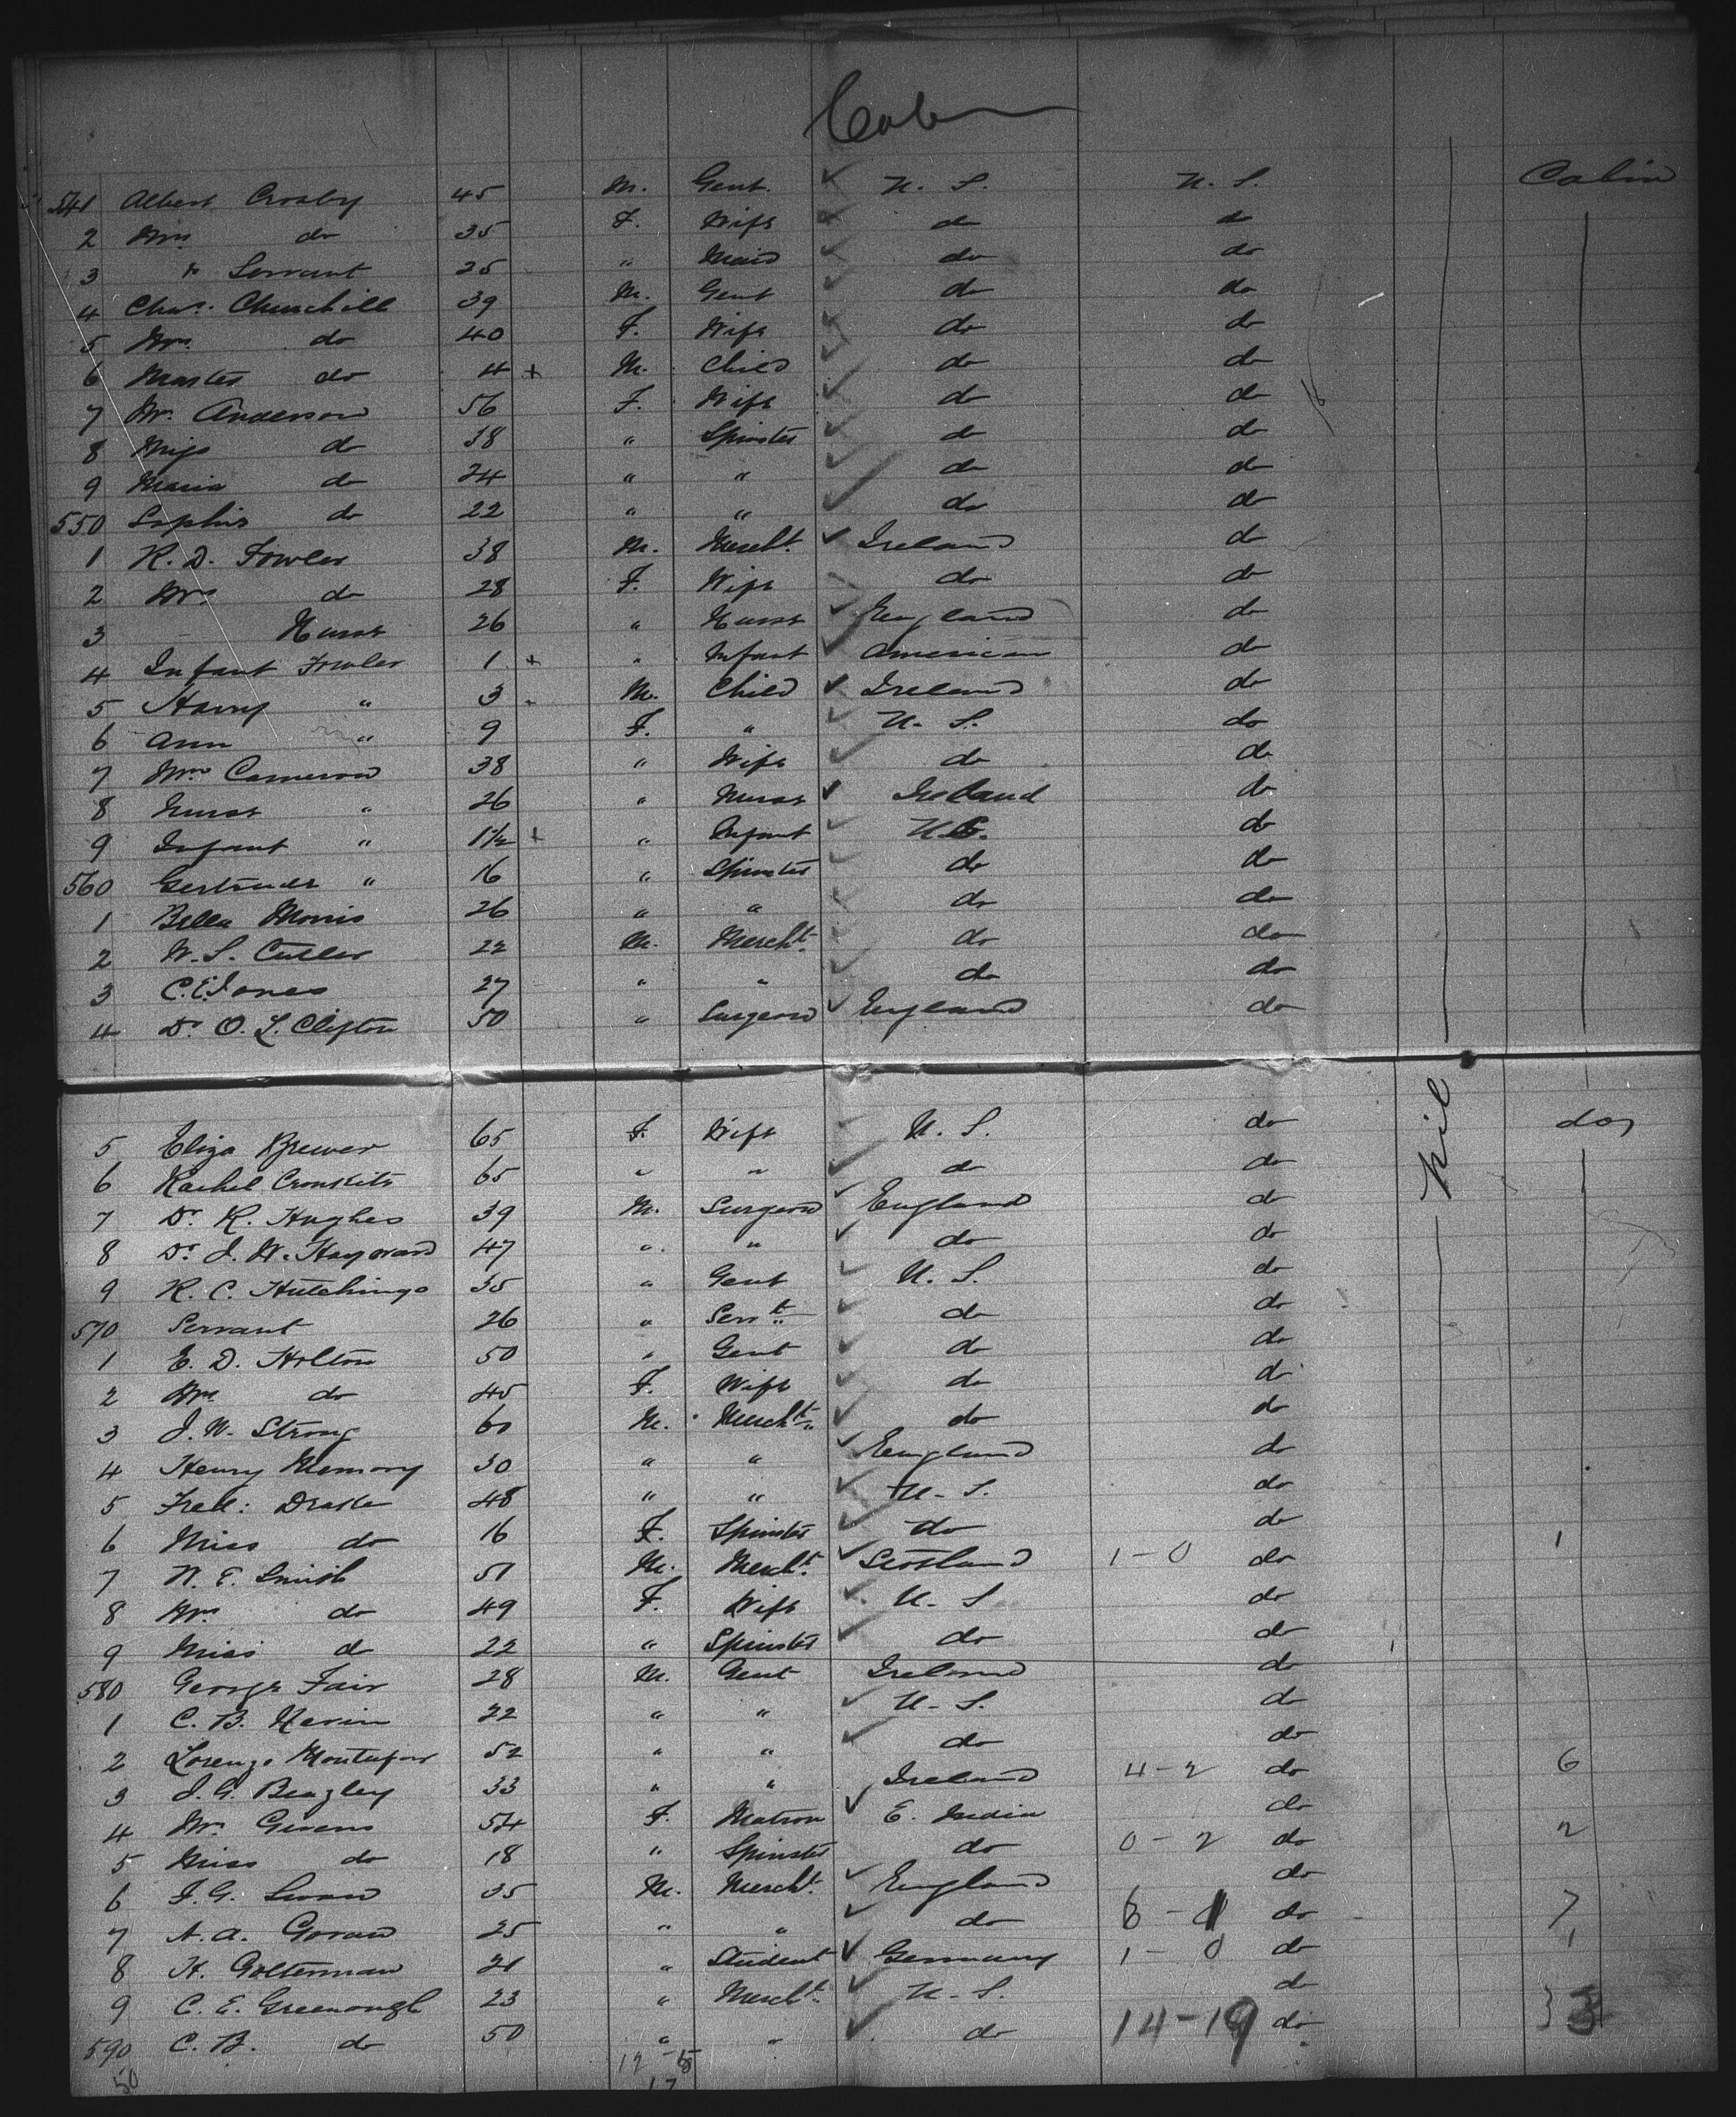 Cabin
541 Albert Crosby 45 M. Gent. U. S. U. S. Cabin
2 Mrs do 35 F. Wife do do
3 " Servant 25 " Maid do do
4 Chas. Churchill 39 M. Gent do do
5 Mrs do 40 F. Wife do do
6 Master do 4 + M. Child do do
7 Mrs Anderson 56 F. Wife do do
8 Miss do 38 " Spinster do do
9 Maria do 24 " " do do
550 Sophia do 22 " " do do
1 R. D. Fowler 38 M. Mercht. Ireland do
2 Mrs do 28 F. Wife do do
3 Nurse 26 " Nurse England do
4 Infant Fowler 1 + " Infant American do
5 Harry " 3 M. Child Ireland do
6 Ann " 9 F. " U. S. do
7 Mrs Cameron 38 " Wife do do
8 Nurse " 26 " Nurse Ireland do
9 Infant " 1½ + " Infant U.S. do
560 Gertrude " 16 " Spinster do do
1 Bella Morris 26 " " do do
2 W. S. Cutler 22 M. Mercht. do do
3 C. E. Jones 27 " " do do
4 Dr O. L. Clifton 50 " Surgeon England do
5 Eliza Brewer 65 F. Wife U. S. do Nil do
6 Rachel 65 " " do do
7 Dr R. Hughes 39 M. Surgeon England do
8 Dr J. W. Hayward 47 " " do do
9 R. C. Hutchings 35 " Gent U. S. do
570 Servant 26 " Servt. do do
1 E. D. Holton 50 " Gent do do
2 Mrs do 45 F. Wife do do
3 J. W. Strong 60 M. Mercht. do do
4 Henry Memory 30 " " England do
5 Fredk: Drake 48 " " U. S. do
6 Miss do 16 F. Spinster do do
7 N. E. Smith 51 M. Mercht. Scotland 1-0 do 1
8 Mrs do 49 F. Wife U. S do
9 Miss do 22 " Spinster do do
580 George Fair 28 M. Gent Ireland do
1 C. B. Nevin 22 " " U. S. do
2 Lorenzo Montufar 52 " " do do
3 J. G. Beazley 33 " " Ireland 4-2 do 6
4 Mrs Givens 54 F. Matron E. India do
5 Miss do 18 " Spinster do 0-2 do 2
6 J. G. Swan 35 M. Mercht. England do
7 A. A. Govan 25 " " do 6-1 do 7
8 H. Golterman 21 " Student Germany 1-0 do 1
9 C. E. Greenough 23 " Mercht. U. S. do
590 C. B. do 50 " " do 14-19 do 33
50 12-5
17